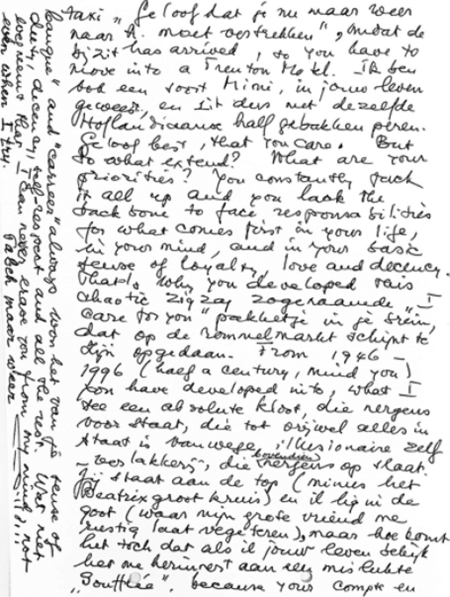 taxi „Geloof dat je nu maar weer
naar A. moet vertrekken", omdat de
bijzit has arrived, so you have to
move into a Trenton Motel. Ik ben
ook een soort Mimi, in jouw leven
geweest, en zit dus met dezelfde
Hollandiaanse half gebakken peren.
Geloof best, that you care. But
to what extend? What are your
priorities? You constantly fuck
it all up and you lack the
back bone to face responsabilities
for what comes first in your life,
in your mind, and in your basic
sense of loyalty, love and decency.
That's why you developed this
chaotic zigzag zogenaamde „I
care for you" pakketje in je brein,
dat op de rommelmarkt schijnt te
zijn opgedaan. From 1946 —
1996 (half a century, mind you)
you have developed into, what I
see een absolute kloot, die nergens
voor staat, die tot vrijwel alles in
staat is vanwege, illusionaire zelf
verlakkerij, die bovendien nergens op slaat.
Jij staat aan de top (minus het
Beatrix groot kruis) en ik lig in de
goot (waar mijn grote vriend me
rustig laat vegeteren), maar hoe komt
het toch dat als ik jouw leven bekijk
het me herinnert aan een mislukte
„Soufflée", because your compte en
banque" and "carrees" always won het van je sense of
duty, decency, self-respect and all the rest. Wat niet
wegneemt that I can never erase you from my mind, not
even when I try.
Pabch maar weer